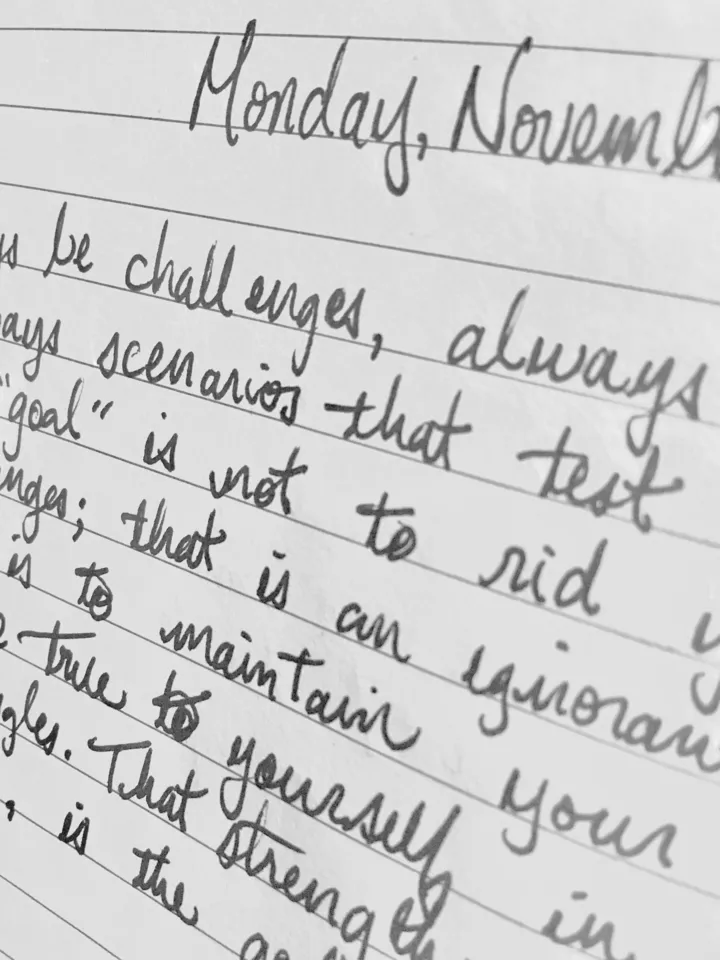 Monday, Novemb
be challenges, always
ays scenarios that test
"goal" is not to rid y
nges; that is an ignoran
is to maintain your
true to yourself in
gles. That strength
, is the go